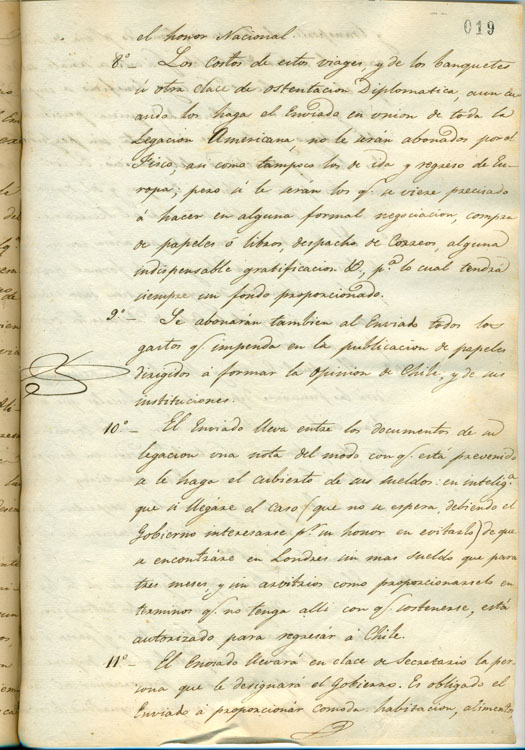 019
el honor Nacional
8º- Los costos de estos viages, y de los banquetes
ú otra clace de ostentacion Diplomatica, aun cu-
ando los haga el Enviado en union de toda la
Legacion Americana, no le serán abonados por el
Fisco, asi como tampoco los de ida y regreso de Eu-
ropa; pero si le serán los q.e se viere precisado
á hacer en alguna formal negociacion, compra
de papeles ó libros, despacho de Correos, alguna
indispensable gratificacion &, p.a lo cual tendrá
siempre un fondo proporcionado.
9º- Se abonarán tambien al Enviado todos los
gastos q.e impenda en la publicacion de papeles
dirigidos á formar la opinion de Chile, y de sus
instituciones.
10º- El Enviado lleva entre los documentos de su
legacion una nota del modo con q.e está prevenido
se le haga el cubierto de sus sueldos: en intelig.a
que si llegáre el caso (que no se espera, debiendo el
Gobierno interesarse p.r su honor en evitarlo) de que
se encontráre en Londres sin mas sueldo que para
tres meses, y sin arvitrios como proporcionarselo en
terminos q.e no tenga alli con q.e sostenerse, está
autorizado para regresár á Chile.
11º- El Enviado llevará en clace de Secretario la per-
sona que le designará el Gobierno. Es obligado el
Enviado á proporcionár comoda habitacion, alimentos